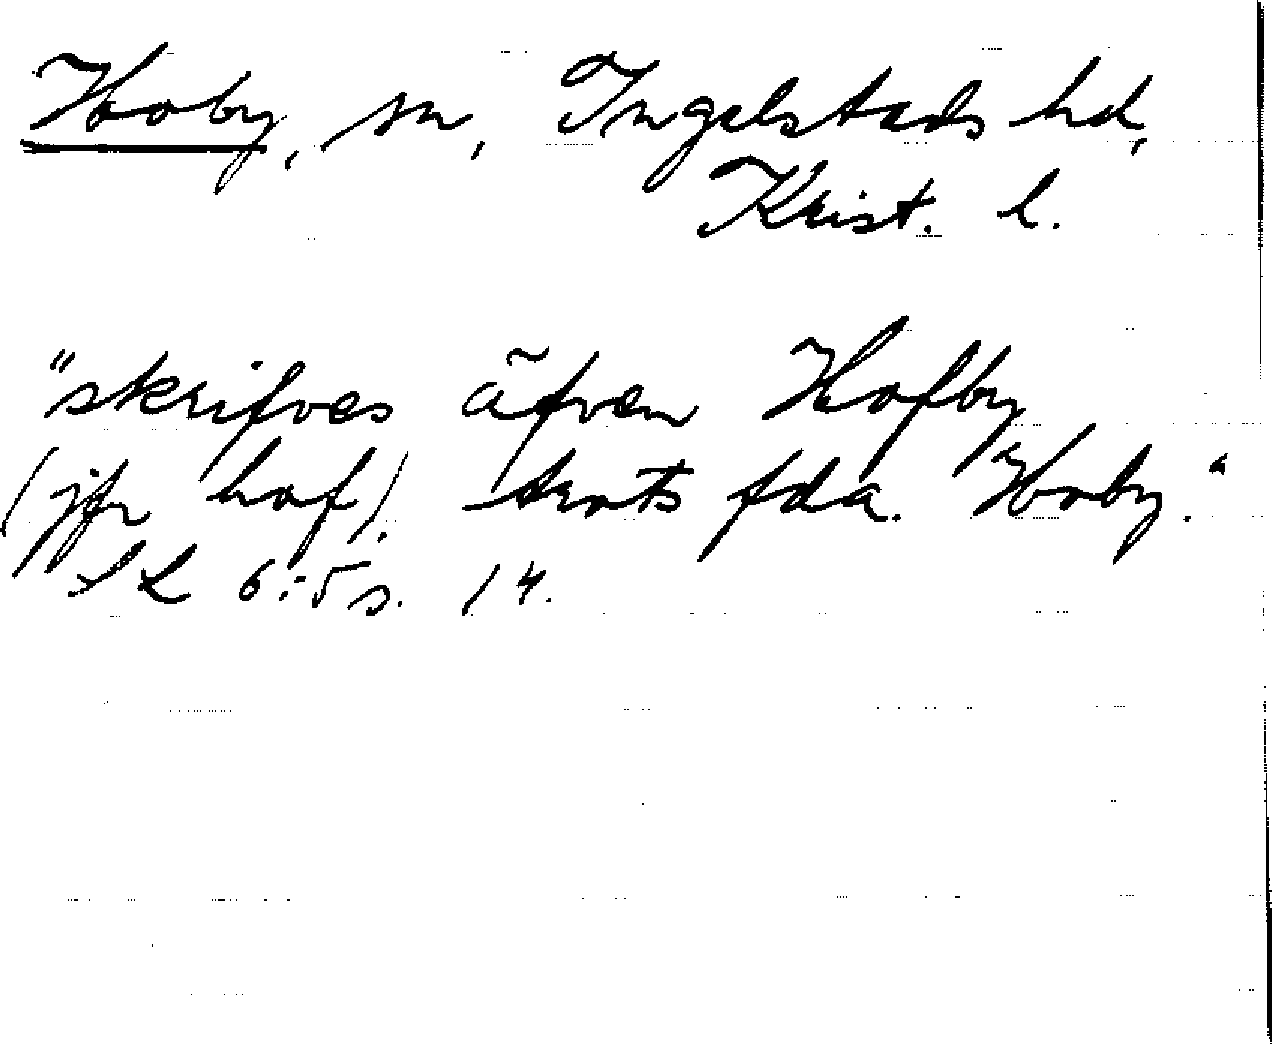 Hoby, sn, Ingelstads hd,
Krist. l.
"skrifves äfven Hofby
(jfr hof), trots fda. "Hoby".
SL 6:5 s. 14.